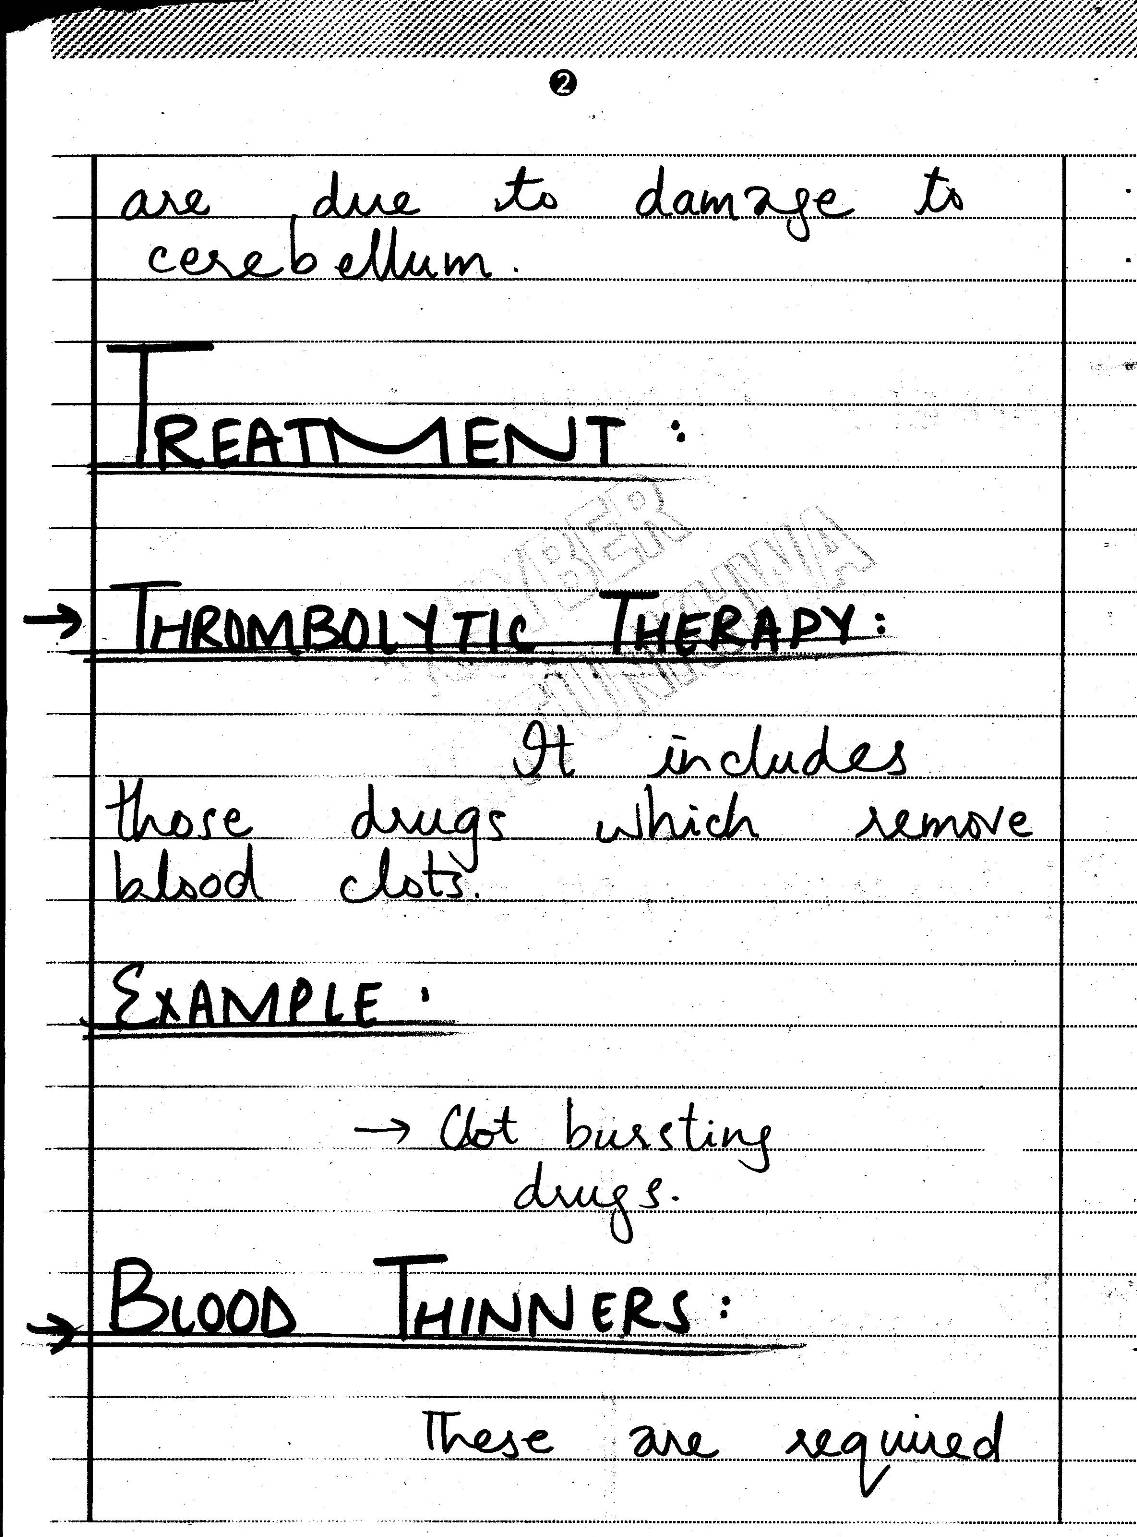 2
are due to damage to
cerebellum.
TREATMENT :
KHYBER
PAKHTUNKHWA
→ THROMBOLYTIC THERAPY:
It includes
those drugs which remove
blood clots.
EXAMPLE :
→ Clot bursting
drugs.
→ BLOOD THINNERS :
These are required